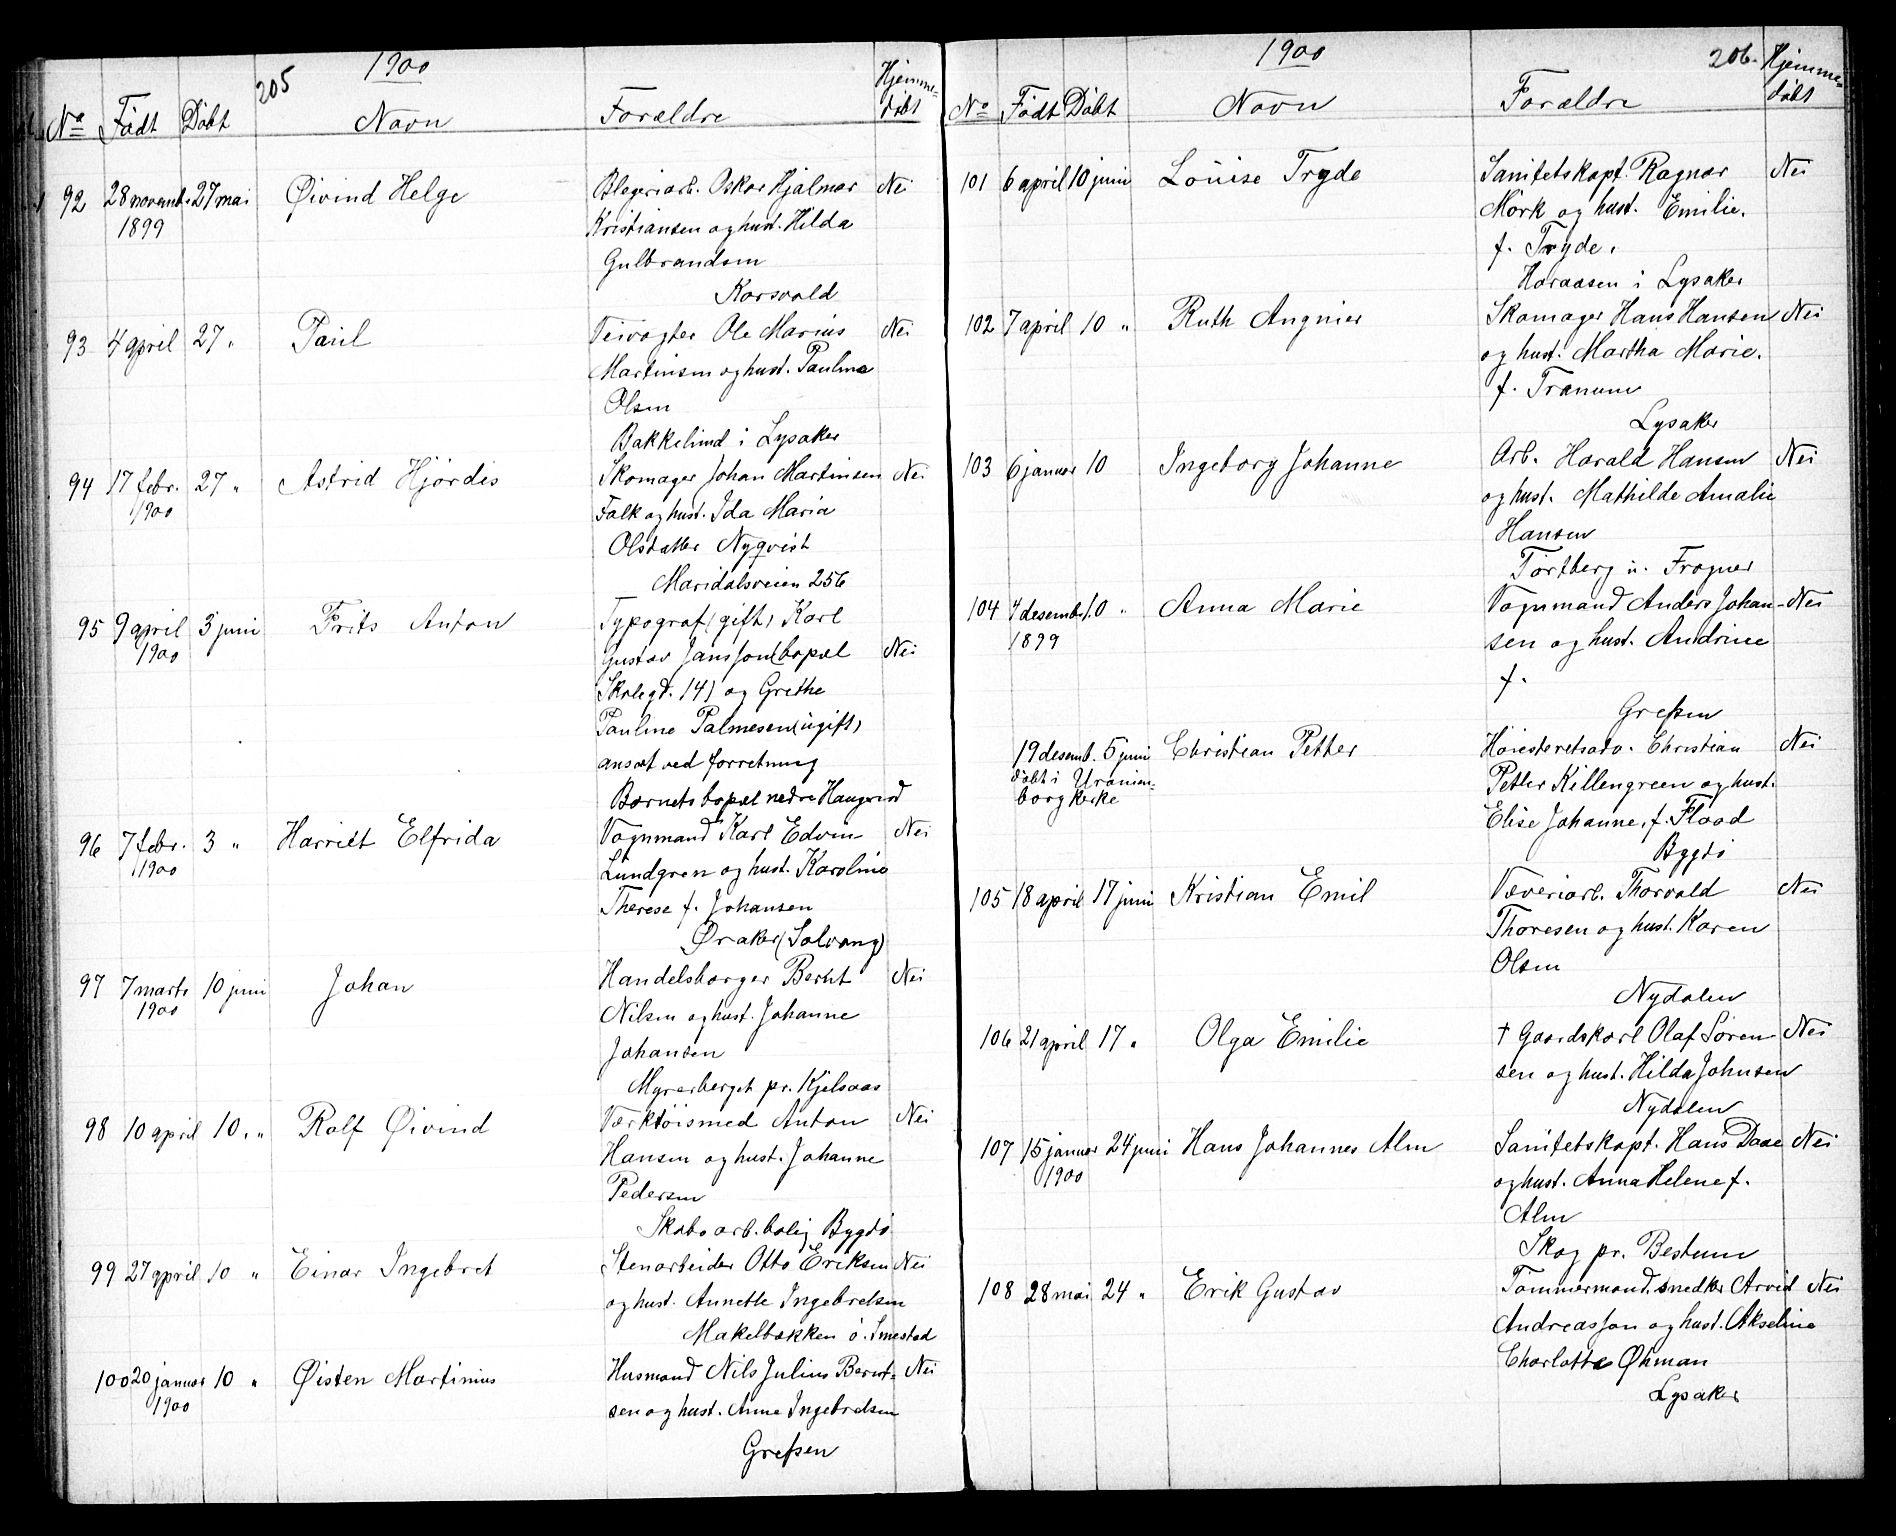 205
1900
No Født Døbt Navn Forældre Hjemme-
døbt
92 28 novemb. 27 mai Øivind Helge Blegeriarb. Oskar Hjalmar Nei
1899 Kristiansen og hust. Hilda
Gulbrandsen
Korsvold
93 4 april 27 " Paul Veivogter Ole Marius Nei
Martinsen og hust. Pauline
Olsen
Bakkelund i Lysaker
94 17 febr. 27 " Astrid Hjørdis Skomager Johan Martinsen Nei
1900 Falk og hust. Ida Maria
Olsdatter Nyqvist
Maridalsveien 256
95 9 april 3 juni Frits Anton Typograf (gift) Karl
1900 Gustav Jansson (bopæl Nei
Skolegd. 14) og Grethe
Pauline Palmesen (ugift)
ansat ved forretning
Barnets bopæl nedre Haugerud
96 7 febr. 3 " Harriet Elfrida Vognmand Karl Edvin Nei
1900 Lundgren og hust. Karoline
Therese f. Johansen
Øraker (Solvang)
97 7 marts 10 juni Johan Handelsborger Bernt Nei
1900 Nilsen og hust. Johanne
Johansen
Myrerberget pr. Kjelsaas
98 10 april 10. " Rolf Øivind Værktøismed Anton Nei
Hansen og hust. Johanne
Pedersen
Skabo arb. bolig Bygdø
99 27 april 10 " Einar Ingebret Stenarbeider Otto Eriksen Nei
og hust. Annette Ingebretsen
Makelbakken ö. Smestad
100 20 januar 10 " Øisten Martinius Husmand Nils Julius Bernt- Nei
1900 sen og hust. Anna Ingebretsen
Grefsen
1900 206.
No Født Døbt Navn Forældre Hjemme-
døbt
101 6 april 10 juni Louise Tryde Sanitetskapt. Ragnar Nei
Mørk og hust. Emilie.
f. Tryde.
Horaasen i Lysaker
102 7 april 10 " Ruth Angnier Skomager Hans Hansen Nei
og hust. Martha Marie.
f. Tranum
Lysaker
103 6 januar 10 Ingeborg Johanne Arb. Harald Hansen Nei
og hust. Mathilde Amalie
Hansen
Tørtberg u. Frogner
104 4 desemb. 10 " Anna Marie Vognmand Anders Johan- Nei
1899 sen og hust. Andrine
f.
Grefsen
19 desemb. 5 juni Christian Petter Høiesteretsadv. Christian Nei
døbt i Uranien- Petter Killengreen og hust.
borg kirke Elise Johanne, f. Flood
Bygdø
105 18 april 17 juni Kristian Emil Væveriarb. Thorvald Nei
Thoresen og hust. Karen
Olsen
Nydalen
106 21 april 17 " Olga Emilie † Gaardskarl Olaf Søren- Nei
sen og hust. Hilda Johnsen
Nydalen
107 15 januar 24 juni Hans Johannes Alm Sanitetskapt. Hans Daae Nei
1900 og hust. Anna Helene f.
Alm
Skog pr. Bestum
108 28 mai 24 " Erik Gustav Tømmermand, snedker Arvid Nei
Andreasson og hust. Akseline
Charlotta Øhman
Lysaker